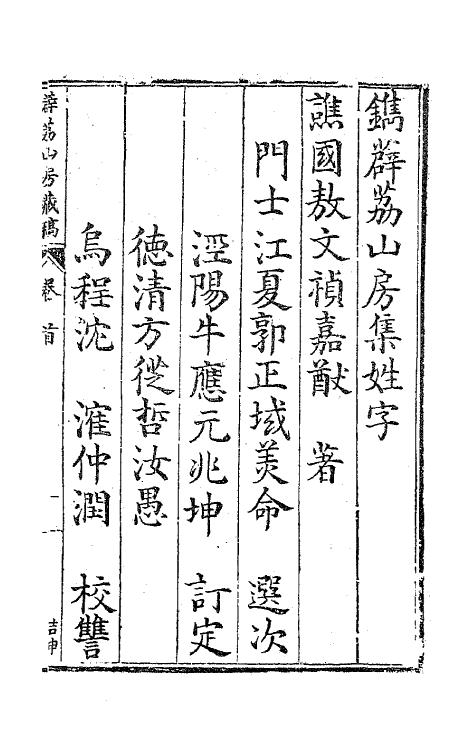 鐫薜荔山房集姓字
譙國敖文禎嘉猷　著
門士江夏郭正域美命　選次
涇陽牛應元兆坤　訂定
德清方從哲汝愚
烏程沈　漼仲潤　校讐
薜荔山房藏稿
卷首
一
吉中